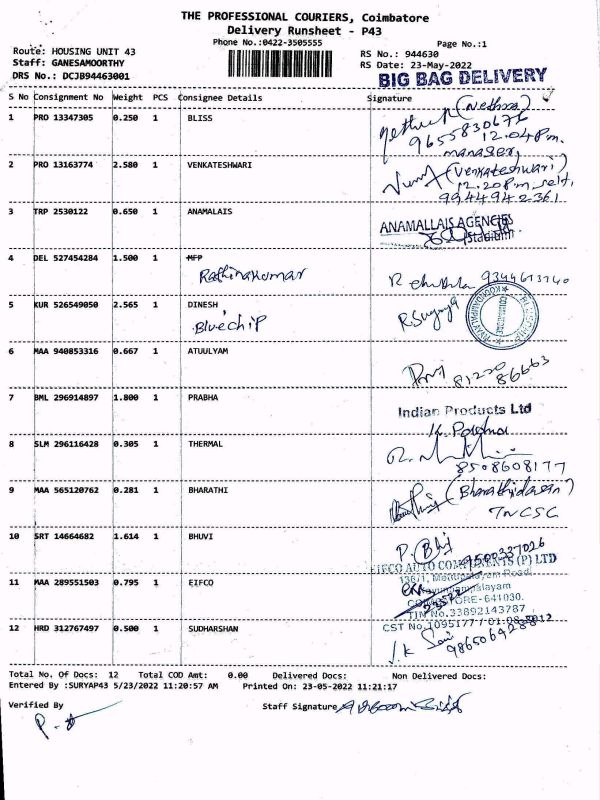 THE PROFESSIONAL COURIERS, Coimbatore
Delivery Runsheet - P43
Phone No.:0422-3505555
Page No.:1
Route: HOUSING UNIT 43
RS No.: 944630
Staff: GANESAMOORTHY
RS Date: 23-May-2022
DRS No.: DCJB94463001
BIG BAG DELIVERY
S No Consignment No Weight PCS Consignee Details Signature
1 PRO 13347305 0.250 1 BLISS
(Nethra)
9655830676
12.04Pm.
manager,
2 PRO 13163774 2.580 1 VENKATESHWARI
(Venkateshwari)
12.20Pm, self,
9944942361
3 TRP 2530122 0.650 1 ANAMALAIS
ANAMALLAIS AGENCIES
Stadium
4 DEL 527454284 1.500 1 MFP
Rathinakumar
5 KUR 526549050 2.565 1 DINESH
Bluechip
6 MAA 940853316 0.667 1 ATUULYAM
81220 86663
7 BML 296914897 1.800 1 PRABHA
Indian Products Ltd
8 SLM 296116428 0.305 1 THERMAL
8508608177
9 MAA 565120762 0.281 1 BHARATHI
(Bharathidasan)
TNCSC
10 SRT 14664682 1.614 1 BHUVI
9500337026
11 MAA 289551503 0.795 1 EIFCO
AUTO COMPONENTS (P) LTD
COIMBATORE-641030.
TIN No.33892143787
CST No.1095177 / 01.08.2012
12 HRD 312767497 0.500 1 SUDHARSHAN
Total No. Of Docs: 12 Total COD Amt: 0.00 Delivered Docs: Non Delivered Docs:
Entered By :SURYAP43 5/23/2022 11:20:57 AM Printed On: 23-05-2022 11:21:17
Verified By
Staff Signature